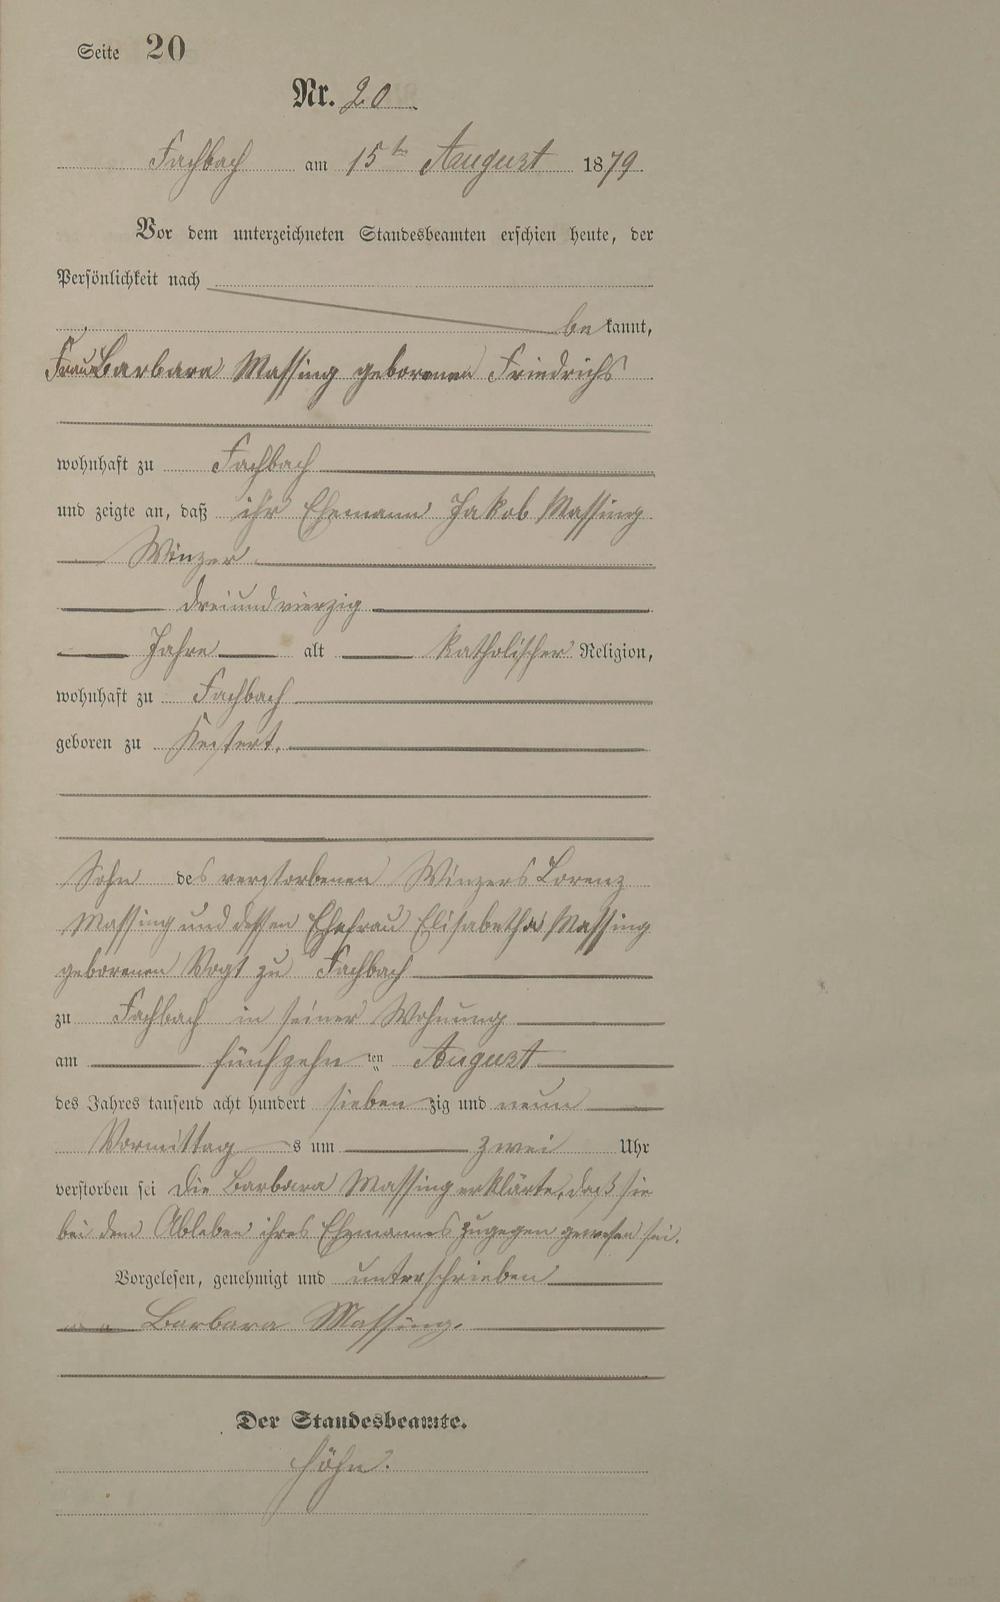 Seite 20
Nr. 20
Fachbach am 15ten August 1879
Vor dem unterzeichneten Standesbeamten erschien heute, der
Persönlichkeit nach
bekannt,
Frau Barbara Massing geborenen Friedrichs
wohnhaft zu Fachbach
und zeigte an, daß ihr Ehemann Jakob Massing
Winzer
dreiundvierzig
Jahre alt katholischer Religion,
wohnhaft zu Fachbach
geboren zu
Sohn des verstorbenen Winzers Lorenz
Massing und dessen Ehefrau Elisabetha Massing
geborenen Vogt zu Fachbach
zu Fachbach in seiner Wohnung
am fünfzehnten August
des Jahres tausend acht hundert siebenzig und neun
Vormittags um zwei Uhr
verstorben sei die Barbara Massing erklärte, daß sie
bei dem Ableben ihres Ehemannes zugegen gewesen sei.
Vorgelesen, genehmigt und unterschrieben
Barbara Massing.
Der Standesbeamte.
Höhn.